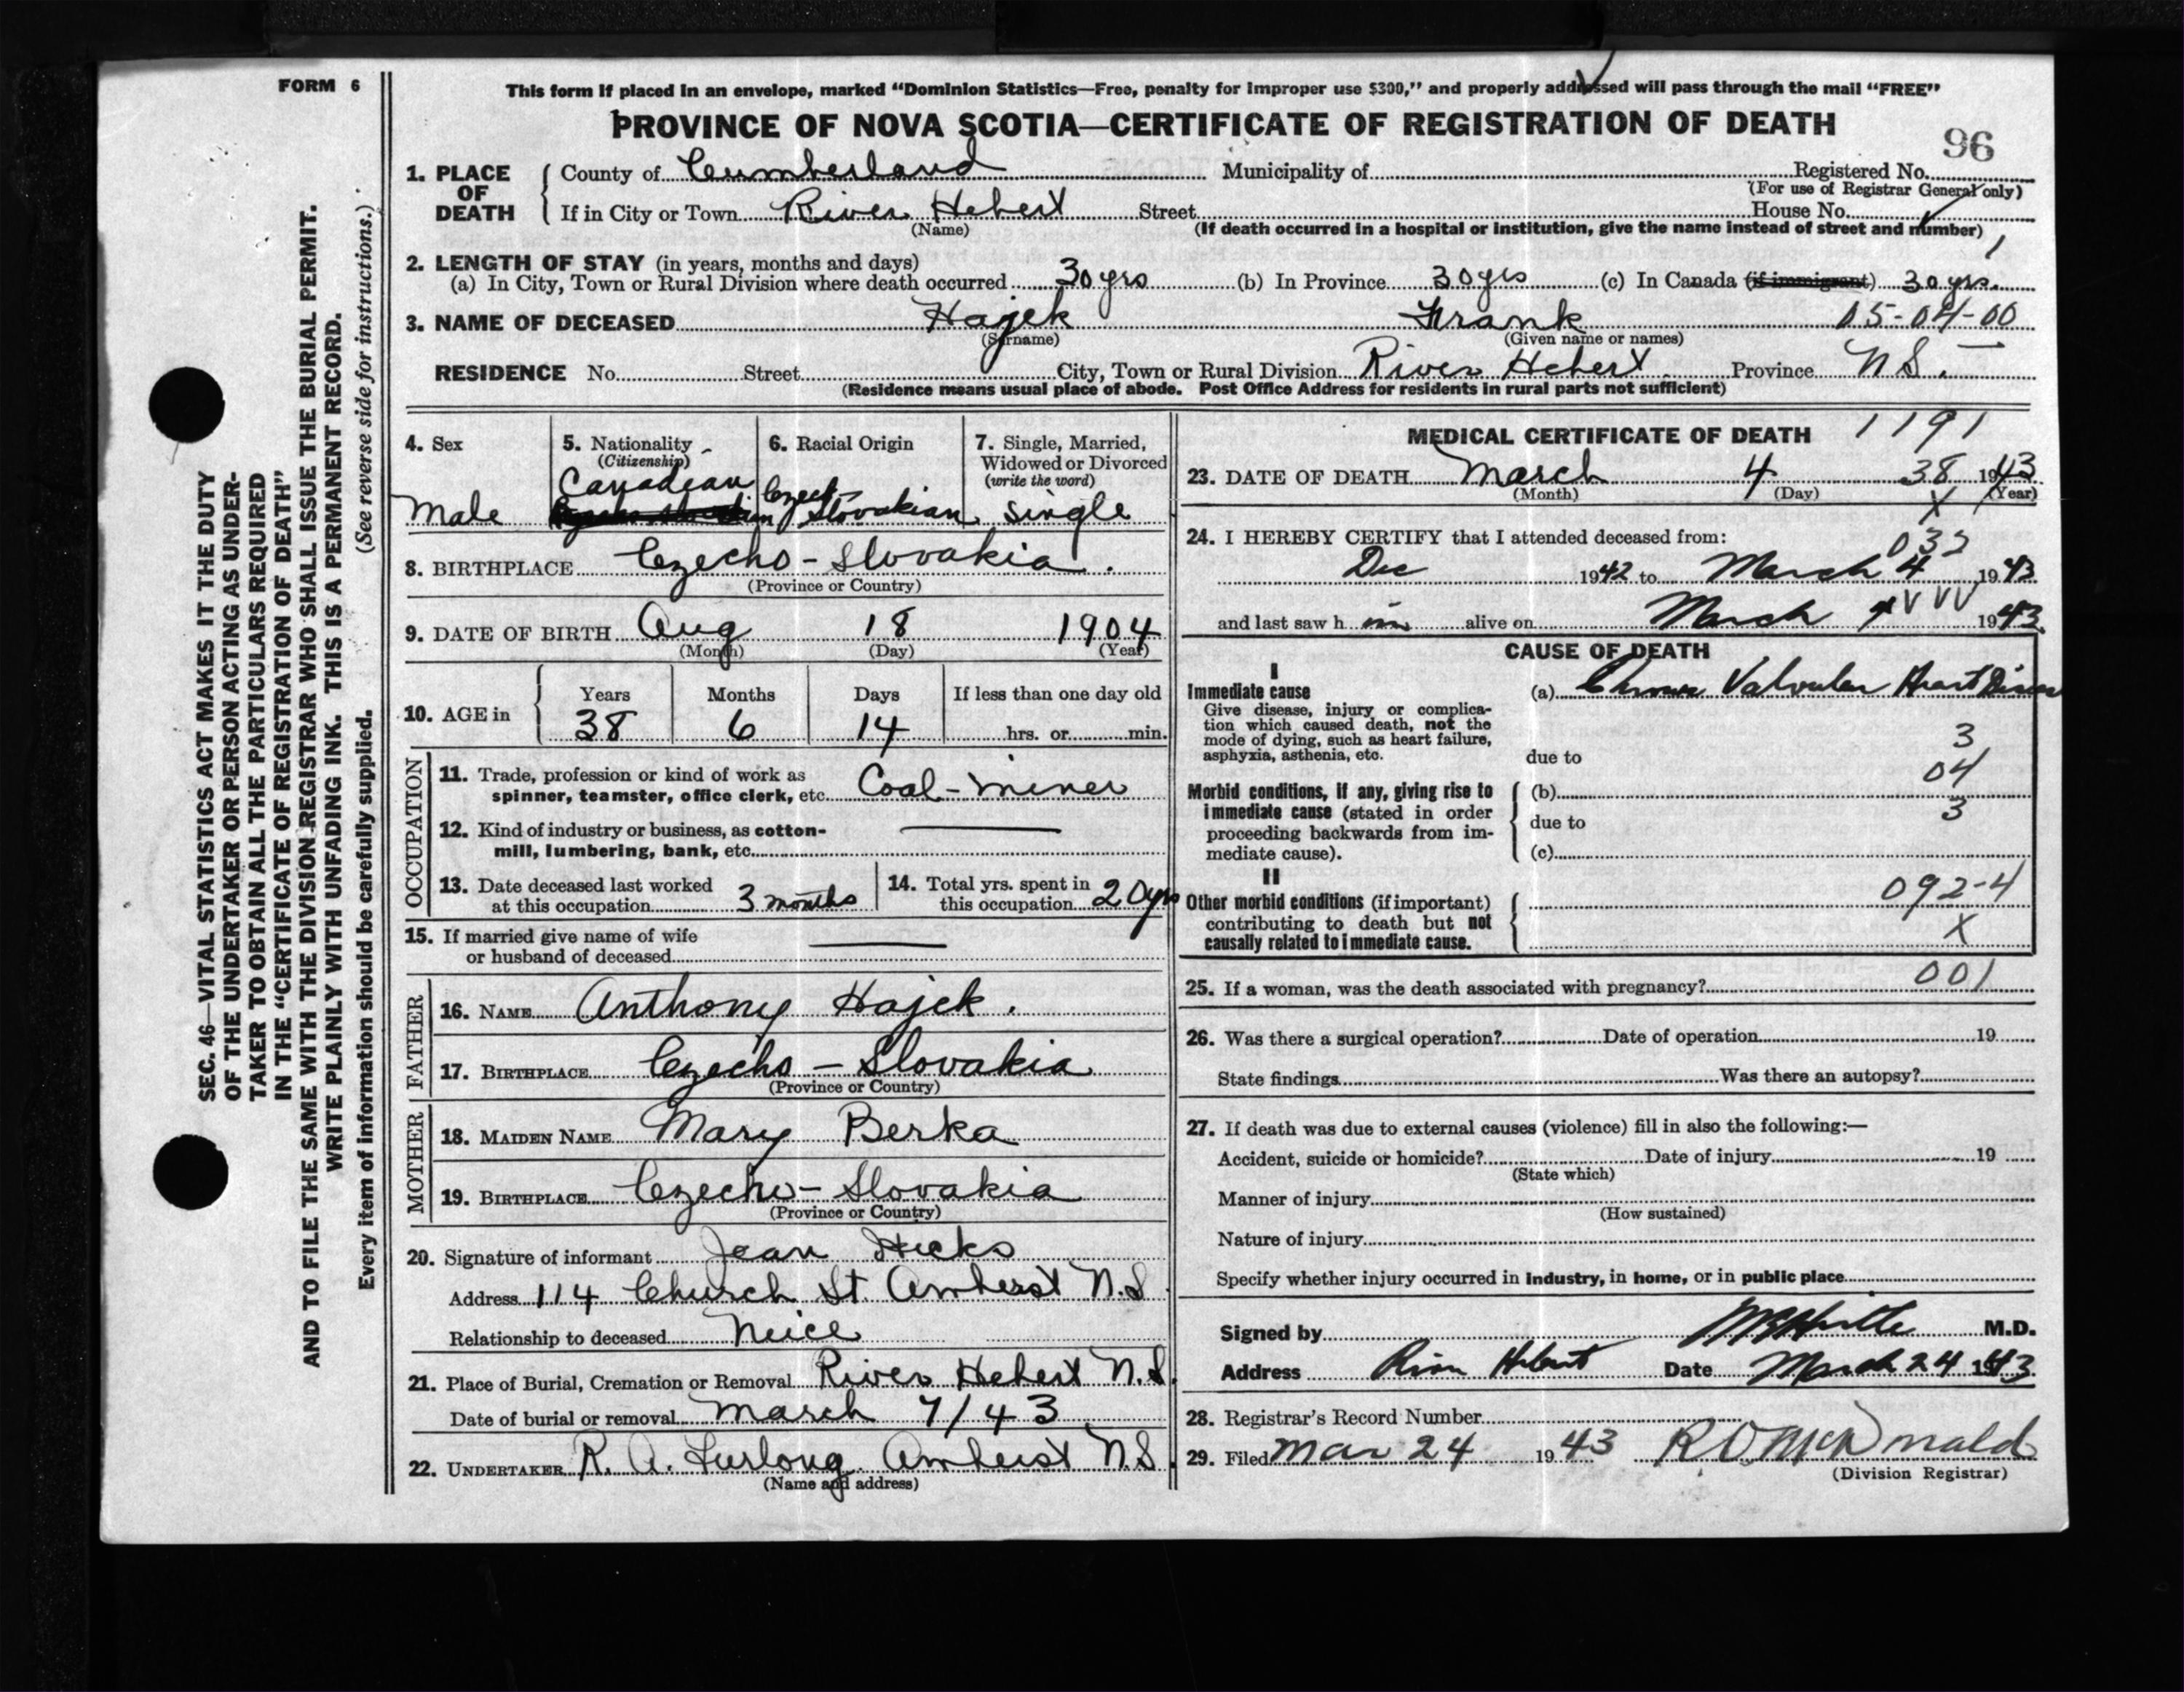 FORM 6
This form if placed in an envelope, marked “Dominion Statistics—Free, penalty for improper use $300,” and properly addressed will pass through the mail “FREE”
PROVINCE OF NOVA SCOTIA—CERTIFICATE OF REGISTRATION OF DEATH
96
1. PLACE OF DEATH
County of Cumberland Municipality of Registered No.
(For use of Registrar General only)
If in City or Town River Hebert Street House No.
(Name) (If death occurred in a hospital or institution, give the name instead of street and number)
1
2. LENGTH OF STAY (in years, months and days)
(a) In City, Town or Rural Division where death occurred 30 yrs (b) In Province 30 yrs (c) In Canada (if immigrant) 30 yrs.
3. NAME OF DECEASED Hajek Frank 05-04-00
(Surname) (Given name or names)
RESIDENCE No. Street City, Town or Rural Division River Hebert. Province N S.
(Residence means usual place of abode. Post Office Address for residents in rural parts not sufficient)
4. Sex
Male
5. Nationality
(Citizenship)
Canadian
6. Racial Origin
Czech-
Slovakian
7. Single, Married,
Widowed or Divorced
(write the word)
single
8. BIRTHPLACE Czecho-Slovakia.
(Province or Country)
9. DATE OF BIRTH Aug 18 1904
(Month) (Day) (Year)
10. AGE in
Years Months Days If less than one day old
38 6 14 hrs. or min.
OCCUPATION
11. Trade, profession or kind of work as
spinner, teamster, office clerk, etc. Coal-miner
12. Kind of industry or business, as cotton-
mill, lumbering, bank, etc. —
13. Date deceased last worked
at this occupation 3 months
14. Total yrs. spent in
this occupation 20 yrs
15. If married give name of wife
or husband of deceased —
FATHER
16. NAME Anthony Hajek.
17. BIRTHPLACE Czecho-Slovakia
(Province or Country)
MOTHER
18. MAIDEN NAME Mary Berka
19. BIRTHPLACE Czecho-Slovakia
(Province or Country)
20. Signature of informant Jean Hicks
Address 114 Church St Amherst N.S
Relationship to deceased Neice
21. Place of Burial, Cremation or Removal River Hebert N.S.
Date of burial or removal March 7/43
22. UNDERTAKER R. A. Furlong Amherst N.S.
(Name and address)
MEDICAL CERTIFICATE OF DEATH 1191
23. DATE OF DEATH March 4 38 1943
(Month) (Day) (Year)
X
24. I HEREBY CERTIFY that I attended deceased from:
032
Dec 1942 to March 4 1943
and last saw h im alive on March 4 1943.
CAUSE OF DEATH
I
Immediate cause
Give disease, injury or complica-
tion which caused death, not the
mode of dying, such as heart failure,
asphyxia, asthenia, etc.
(a) Chronic Valvular Heart Disease
3
due to
04
Morbid conditions, if any, giving rise to
immediate cause (stated in order
proceeding backwards from im-
mediate cause).
(b)
3
due to
(c)
II
Other morbid conditions (if important)
contributing to death but not
causally related to immediate cause.
092-4
X
001
25. If a woman, was the death associated with pregnancy?
26. Was there a surgical operation? Date of operation 19
State findings Was there an autopsy?
27. If death was due to external causes (violence) fill in also the following:—
Accident, suicide or homicide? Date of injury 19
(State which)
Manner of injury
(How sustained)
Nature of injury
Specify whether injury occurred in industry, in home, or in public place
Signed by M.D.
Address River Hebert Date March 24 1943
28. Registrar's Record Number
29. Filed Mar 24 1943 R O McDonald
(Division Registrar)
SEC. 46—VITAL STATISTICS ACT MAKES IT THE DUTY
OF THE UNDERTAKER OR PERSON ACTING AS UNDER-
TAKER TO OBTAIN ALL THE PARTICULARS REQUIRED
IN THE “CERTIFICATE OF REGISTRATION OF DEATH”
AND TO FILE THE SAME WITH THE DIVISION REGISTRAR WHO SHALL ISSUE THE BURIAL PERMIT.
WRITE PLAINLY WITH UNFADING INK. THIS IS A PERMANENT RECORD.
Every item of information should be carefully supplied. (See reverse side for instructions.)